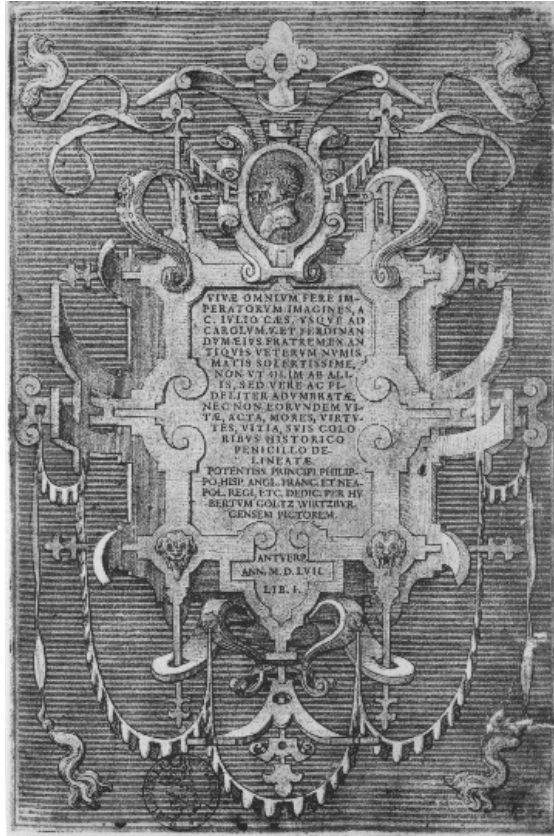 VIVÆ OMNIVM FERE IM-
PERATORVM IMAGINES, A
C. IVLIO CÆS. VSQVE AD
CAROLVM.V. ET FERDINAN
DVM EIVS FRATREM EX AN
TIQVIS VETERVM NVMIS
MATIS SOLERTISSIME,
NON VT OLIM AB ALI-
IS, SED VERE AC FI-
DELITER ADVMBRATÆ,
NEC NON EORVNDEM VI-
TÆ, ACTA, MORES, VIRTV-
TES, VITIA, SVIS COLO
RIBVS HISTORICO
PENICILLO DE-
LINEATÆ
POTENTISS. PRINCIPI PHILIP-
PO, HISP. ANGL. FRANC. ET NEA-
POL. REGI, ETC. DEDIC. PER HV
BERTVM GOLTZ WIRTZBVR-
GENSEM PICTOREM.
ANTVERP.
ANN. M. D. LVII.
LIB. I.